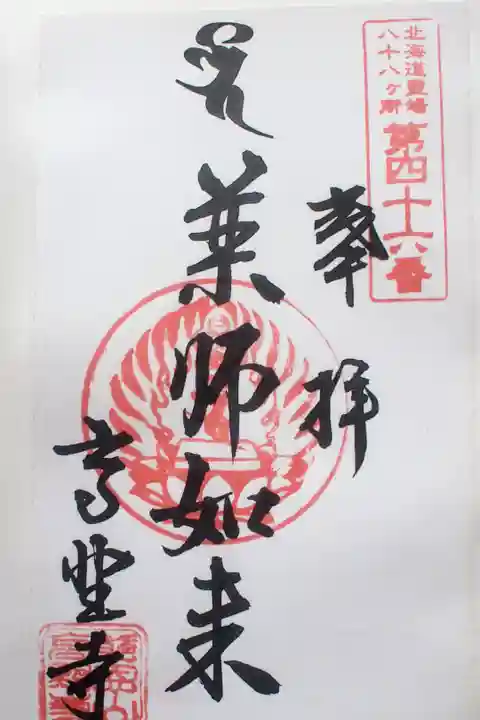 北海道霊場
八十八ヶ所
第四十六番
奉拝
薬師如来